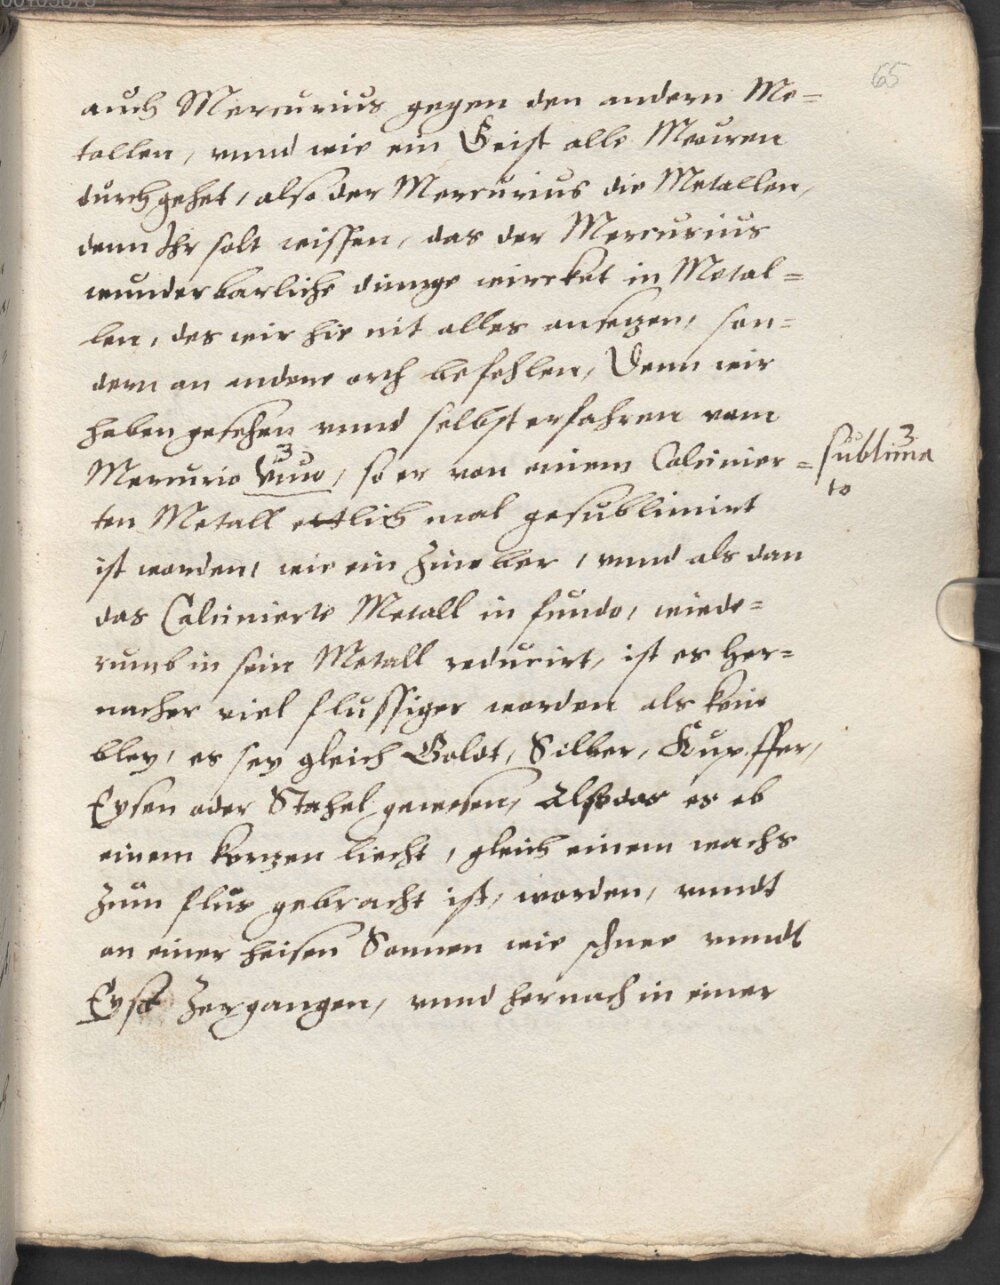 65
auch Mercurius gegen den andern Me=
tallen, vnnd wie ein Geist alle Mauren
durchgehet, also der Mercurius die Metallen,
denn Ihr solt wissen, das der Mercurius
wunderbarliche dinnge wircket in Metal=
len, des wir hie nit alles ansetzen, son=
dern an andere orth befehlen, Denn wir
haben gesehen vnnd selbst erfahren vom
Mercurio viuo, so er von einem Calcinier=
3 sublima
to
ten Metall etlich mal gesublimirt
ist worden, wie ein Zinober, vnnd als dan
das Calcinierte Metall in fundo, wiede=
rumb in sein Metall reducirt, ist es her=
nacher viel flussiger worden als kein
bley, es sey gleich Goldt, Silber, Kupffer,
Eysen oder Stahel gewesen, Also das es ob
einem kertzen liecht, gleich einem wachs
zum flus gebracht ist, worden, vnndt
an einer heisen Sonnen wie schnee vnndt
Eyß zergangen, vnnd hernach in einer